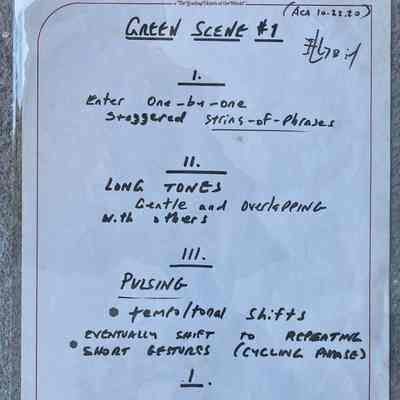 (ACA 10-25-20)
GREEN SCENE #1
I.
Enter One-by-one
Staggered String-of-Phrases
II.
LONG TONES
Gentle and OVERLAPPING
with others
III.
PULSING
• tempo/tonal shifts
• EVENTUALLY SHIFT TO REPEATING
SHORT GESTURES (CYCLING PHRASE)
I.